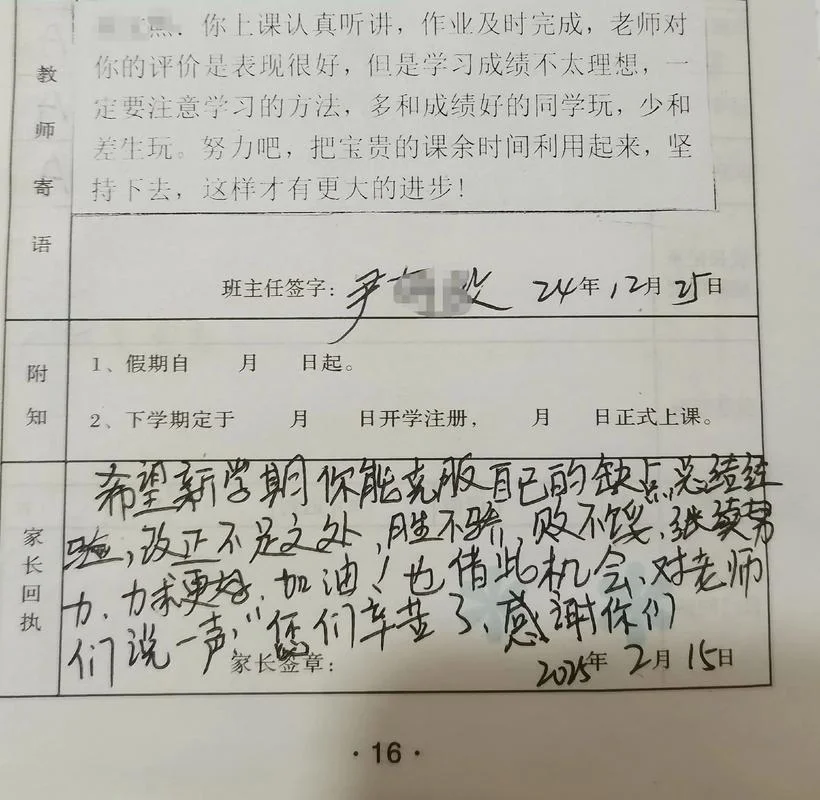 教师寄语
点. 你上课认真听讲，作业及时完成，老师对
你的评价是表现很好，但是学习成绩不太理想，一
定要注意学习的方法，多和成绩好的同学玩，少和
差生玩。努力吧，把宝贵的课余时间利用起来，坚
持下去，这样才有更大的进步！
班主任签字：尹 24年12月25日
附知
1、假期自 月 日起。
2、下学期定于 月 日开学注册， 月 日正式上课。
家长回执
希望新学期你能克服自己的缺点,总结经
验,改正不足之处,胜不骄,败不馁.继续努
力.力求更好.加油!也借此机会、对老师
们说一声,"您们辛苦了、感谢你们
家长签章： 2025年2月15日
·16·